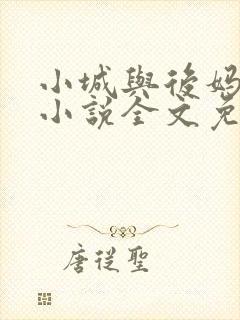 小城與後媽
小說全文免
唐從聖